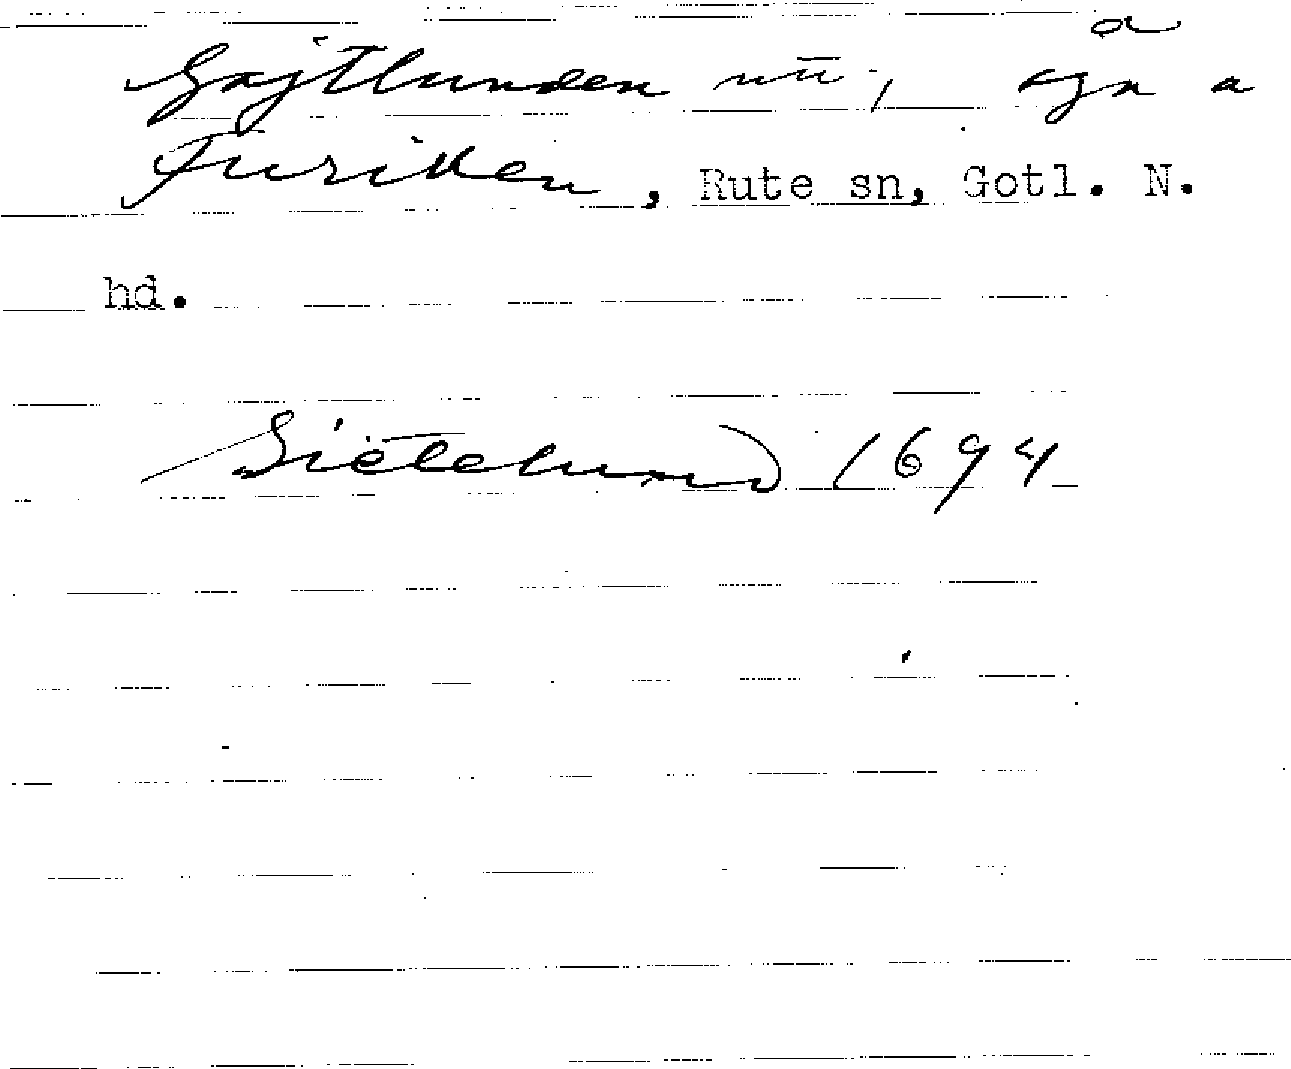 Gajtlunden nu, äga a
Furillen, Rute sn, Gotl. N.
hd.
Siëlelund 1694